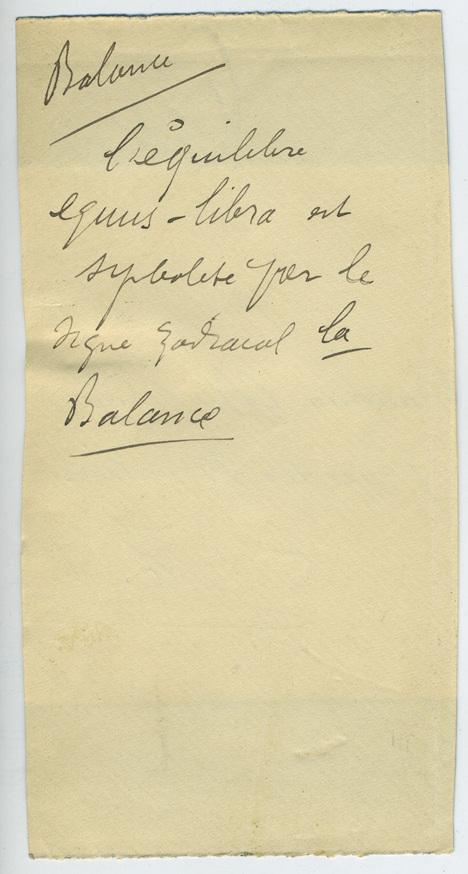 Balance
l'équilibre
equus-libra est
sybolisé par le
signe zodiacal la
Balance